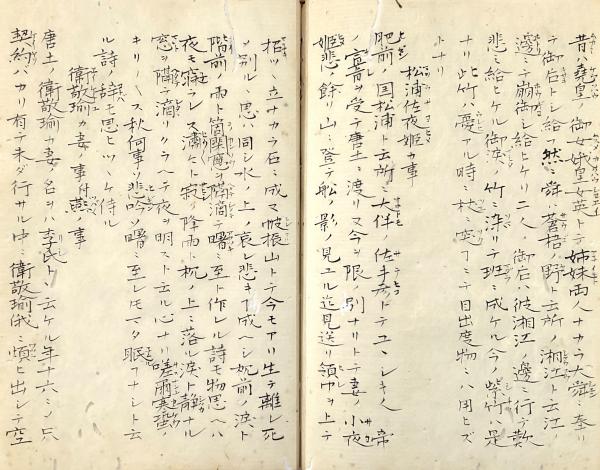 昔ハ堯皇ノ御女娥皇女英トテ姉妹両人ナカラ大舜ニ奉リ
テ御后トシ給フ然ニ舜蒼梧ノ野ト云所ノ湘江ト云江ノ
邊ニテ崩御シ給ヒケリ二人ノ御后ハ彼湘江ノ邊ニ行テ歎
悲ミ給ヒケル御涙ノ竹ニ染リテ班ニ成ケル今ノ紫竹ハ是
ナリ此竹ハ憂アル時ニ杖ニ突フニテ目出度物ニハ用ヒズ
トナリ
松浦佐夜姫カ事
肥前ノ国松浦ト云所ニ大伴ノ佐手彦トテユヽシキ人ノ帝
ノ宣旨ヲ受テ唐土ニ渡リヌ今ヲ限ノ別ナリトテ妻ノ小夜
姫悲ノ餘リ山ニ登テ船ノ影ノ見ユル迄見送リ領巾ヲ上テ
招ツヽ立ナカラ石ニ成ヌ帔振山トテ今モアリ生テ離レ死
ノ別ルヽ思ハ同シ水ノ上ノ哀レ悲キ了成ヘシ枕前ノ涙ト
階前ノ雨ト箇閑窓ヲ隔滴テ曙ニ至ト作レル詩モ物思ヘハ
夜モ寐ラレス瀟々ト寂ク降雨ト枕ノ上ニ落ル涙ト静ナル
窓ヲ隔テ滴リクラヘテ夜ヲ明スト云ル心ナリ嗟雨寒蛩ノ
キリ〳〵ス秋何事ノ悲啼ソ曙ニ至レモマタ眠フナシト云
ル詩ノ辞モ思ヒツヽケ侍ル
衛敬瑜カ妻ノ事付燕ノ事
唐土ノ衛敬瑜カ妻ノ名ヲハ李氏トソ云ケル年十六ニシテ只
契約ハカリ有テ未ダ行サル中ニ衛敬瑜俄ニ煩ヒ出シテ空